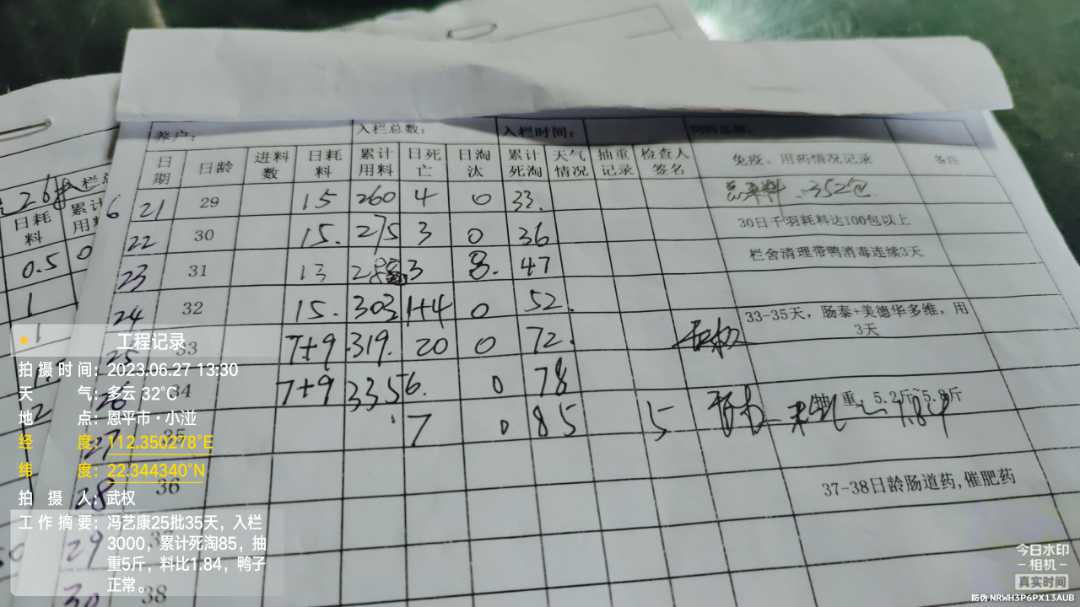 养户：
入栏总数：
入栏时间：
日期 日龄 进料数 日耗料 累计用料 日死亡 日淘汰 累计死淘 天气情况 抽重记录 检查人签名 免疫、用药情况记录 备注
6 21 29 15 260 4 0 33. 352包
22 30 15. 275 3 0 36 30日千羽耗料达100包以上
23 31 13 3 8. 47 栏舍清理带鸭消毒连续3天
24 32 15. 303 1+4 0 52. 33-35天，肠泰+美德华多维，用3天
25 33 7+9 319. 20 0 72.
26 34 7+9 335 6. 0 78 抽重：5.2斤-5.8斤
27 35 7 0 85 5 1.84
28 36 37-38日龄肠道药,催肥药
29
30 38
日耗料
累计用料
0.5 0
1
1
2
工程记录
拍摄时间：2023.06.27 13:30
天气：多云 32℃
地点：恩平市·小湴
经度：112.350278°E
纬度：22.344340°N
拍摄人：武权
工作摘要：冯艺康25批35天，入栏
3000，累计死淘85，抽
重5斤，料比1.84，鸭子
正常。
今日水印
-相机-
真实时间
防伪 NRWH3P6PX13AUB